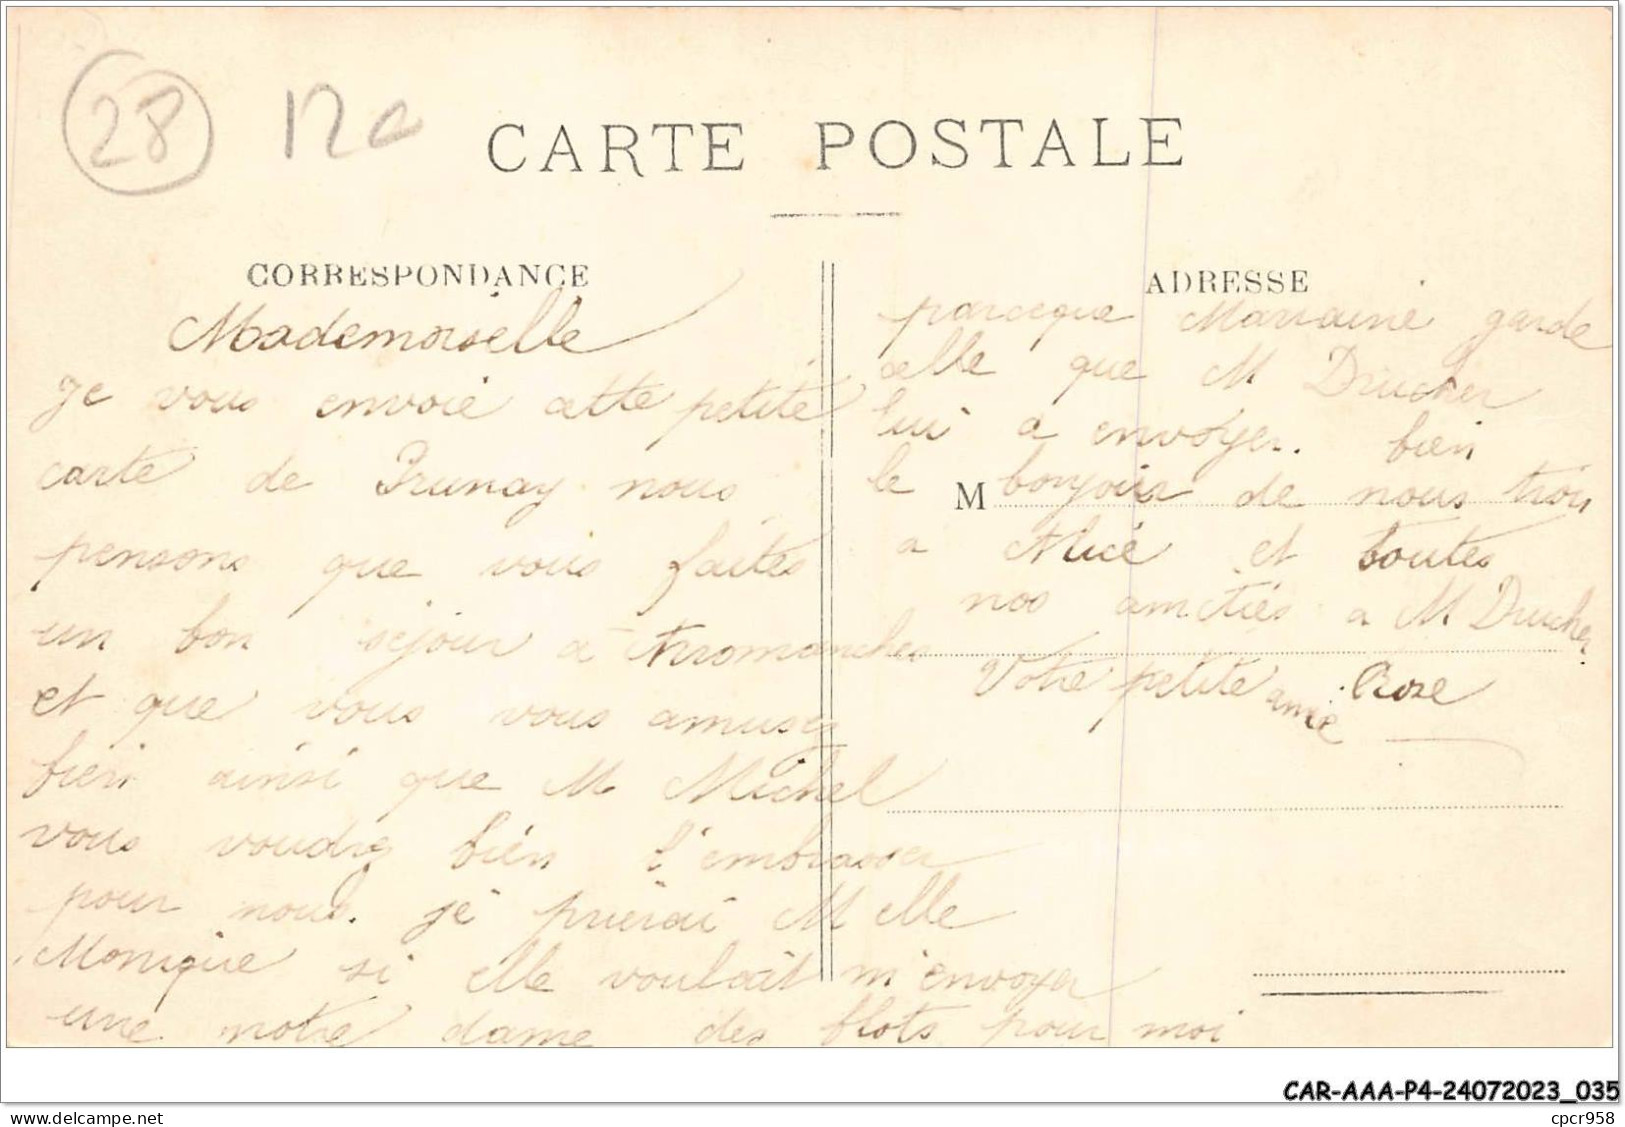 28 12c
CARTE POSTALE
CORRESPONDANCE
Mademoiselle
je vous envoie cette petite
carte de Prunay nous
pensons que vous faites
un bon séjour à Arromanches
et que vous vous amusez
bien ainsi que M Michel
vous voudrez bien l'embrasser
pour nous. je prierai Melle
Monique si elle voulait m'envoyer
une notre dame des flots pour moi
ADRESSE
parceque Marraine garde
celle que M Drucher
lui a envoyer. bien
le bonjour de nous trois
M
a Alice et toutes
nos amitiés a M Drucher
Votre petite amie Rose
CAR-AAA-P4-24072023_035
cpcr958